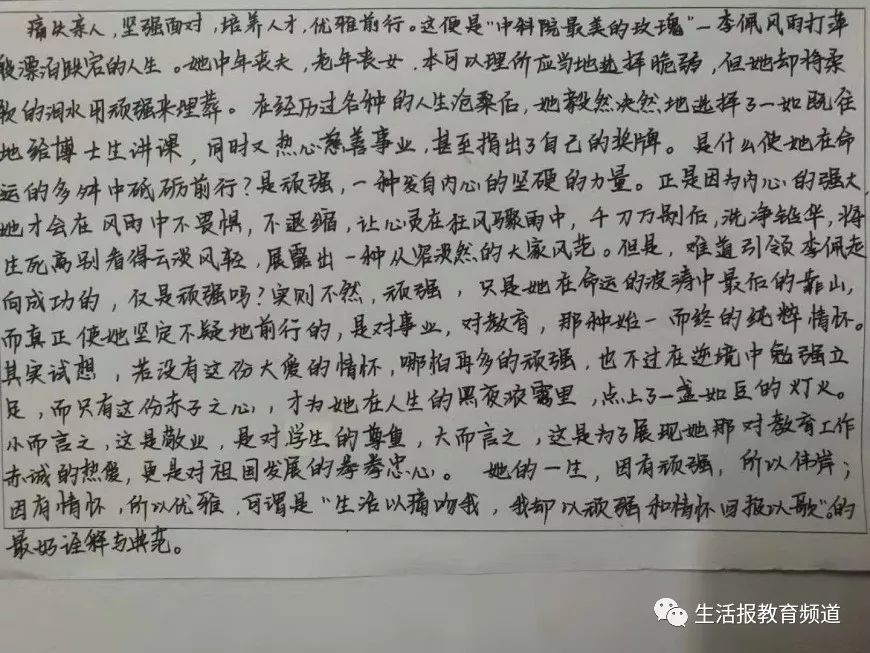 痛失亲人，坚强面对，培养人才，优雅前行。这便是“中科院最美的玫瑰”—李佩风雨打萍
般漂泊跌宕的人生。她中年丧夫，老年丧女，本可以理所应当地选择脆弱，但她却将柔
软的泪水用顽强来埋葬。在经历过各种的人生沧桑后，她毅然决然地选择了一如既往
地给博士生讲课，同时又热心慈善事业，甚至捐出了自己的奖牌。是什么使她在命
运的多舛中砥砺前行？是顽强，一种发自内心的坚硬的力量。正是因为内心的强大，
她才会在风雨中不畏惧，不退缩，让心灵在狂风骤雨中，千刀万剐后，洗净铅华，将
生死离别看得云淡风轻，展露出一种从容淡然的大家风范。但是，难道引领李佩走
向成功的，仅是顽强吗？实则不然，顽强，只是她在命运的波涛中最后的靠山，
而真正使她坚定不疑地前行的，是对事业，对教育，那种始一而终的纯粹情怀。
其实试想，若没有这份大爱的情怀，哪怕再多的顽强，也不过在逆境中勉强立
足，而只有这份赤子之心，才为她在人生的黑夜浓雾里，点上了一盏如豆的灯火。
小而言之，这是敬业，是对学生的尊重，大而言之，这是为了展现她那对教育工作
赤诚的热爱，更是对祖国发展的拳拳忠心。她的一生，因有顽强，所以伟岸；
因有情怀，所以优雅，可谓是“生活以痛吻我，我却以顽强和情怀回报以歌”。的
最好诠释与典范。
生活报教育频道